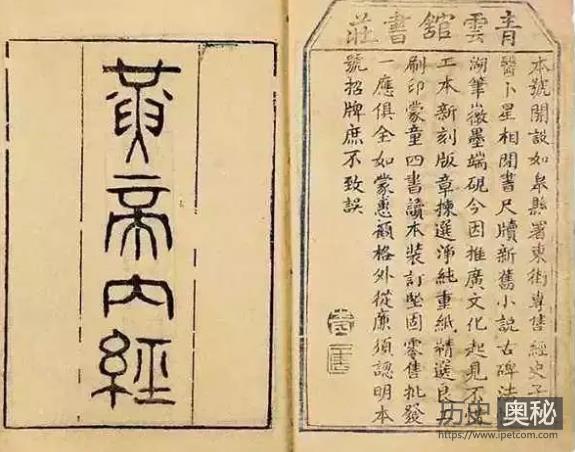 青雲舘書莊
本號開設如皋縣署東街專售經史子
醫卜星相閒書尺牘新舊小說古碑法
湖筆徽墨端硯今因推廣文化起見不
工本新刻版章揀選淨純重紙精選良
刷印蒙童四書讀本裝訂堅固零售批發
一應俱全如蒙惠顧格外從廉須認明本
號招牌庶不致誤
黃帝內經
历史奥秘
https://www.ipetcom.com